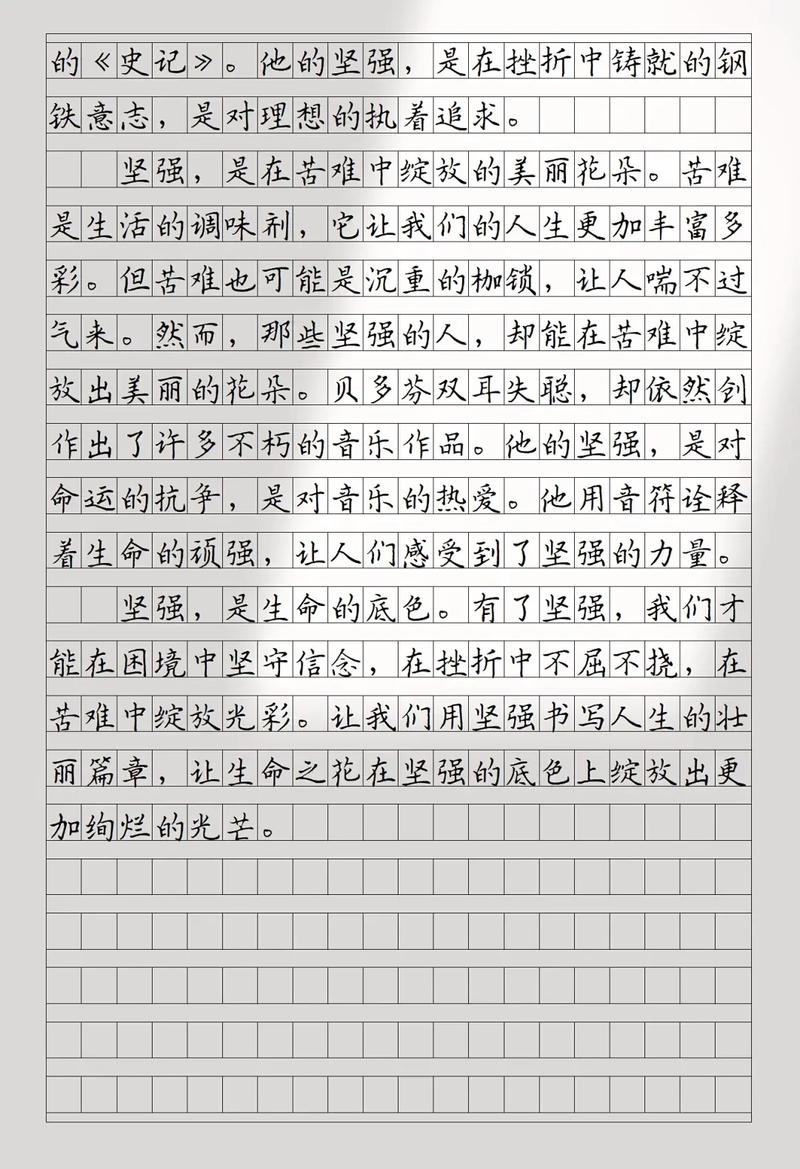 的《史记》。他的坚强，是在挫折中铸就的钢
铁意志，是对理想的执着追求。
坚强，是在苦难中绽放的美丽花朵。苦难
是生活的调味剂，它让我们的人生更加丰富多
彩。但苦难也可能是沉重的枷锁，让人喘不过
气来。然而，那些坚强的人，却能在苦难中绽
放出美丽的花朵。贝多芬双耳失聪，却依然创
作出了许多不朽的音乐作品。他的坚强，是对
命运的抗争，是对音乐的热爱。他用音符诠释
着生命的顽强，让人们感受到了坚强的力量。
坚强，是生命的底色。有了坚强，我们才
能在困境中坚守信念，在挫折中不屈不挠，在
苦难中绽放光彩。让我们用坚强书写人生的壮
丽篇章，让生命之花在坚强的底色上绽放出更
加绚烂的光芒。